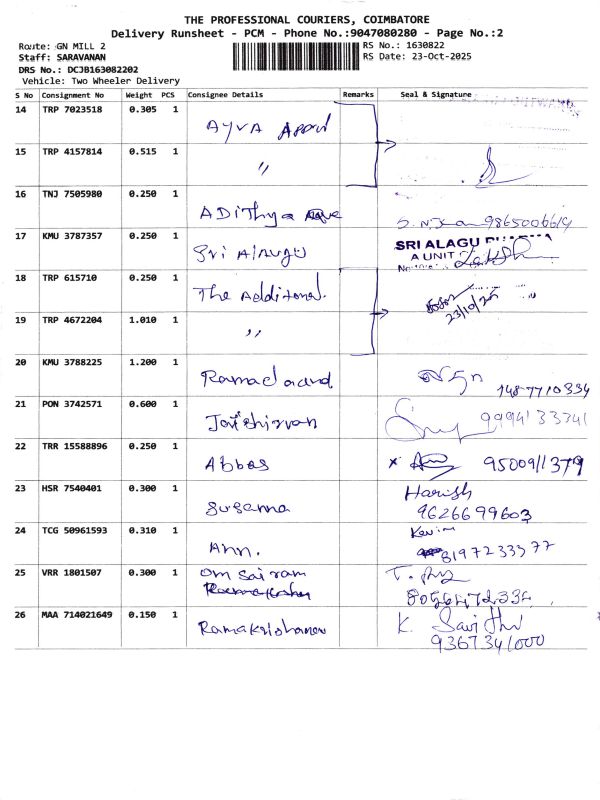 THE PROFESSIONAL COURIERS, COIMBATORE
Delivery Runsheet - PCM - Phone No.:9047080280 - Page No.:2
Route: GN MILL 2
RS No.: 1630822
Staff: SARAVANAN
RS Date: 23-Oct-2025
DRS No.: DCJB163082202
Vehicle: Two Wheeler Delivery
S No Consignment No Weight PCS Consignee Details Remarks Seal & Signature
14 TRP 7023518 0.305 1
15 TRP 4157814 0.515 1 〃
16 TNJ 7505980 0.250 1 ADiThya 9865006614
17 KMU 3787357 0.250 1 Sri Alaugu SRI ALAGU
A UNIT
18 TRP 615710 0.250 1 The Additonal.
23/10/25
19 TRP 4672204 1.010 1 〃
20 KMU 3788225 1.200 1
21 PON 3742571 0.600 1 9994133341
22 TRR 15588896 0.250 1 Abbas 9500911379
23 HSR 7540401 0.300 1 Susanna Harish
9626699603
24 TCG 50961593 0.310 1 Ann. Kevin
8197233377
25 VRR 1801507 0.300 1 Om Sai ram
8056472334
26 MAA 714021649 0.150 1 Ramakrishanan K. Savithri
9367341000